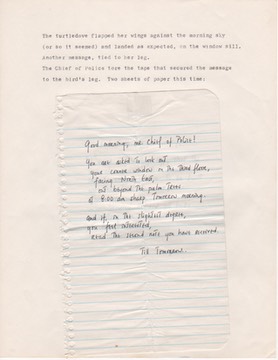 The turtledove flapped her wings against the morning sky
(or so it seemed) and landed as expected, on the window sill.
Another message, tied to her leg.
The Chief of Police tore the tape that secured the message
to the bird's leg. Two sheets of paper this time:
Good morning, mr Chief of Police!
You are asked to look out
your corner window on the third floor,
facing North East,
out beyond the palm trees
at 8:00 am sharp tomorrow morning.
And if, in the slightest degree,
you feel interested,
read the second note you have received.
Till Tomorrow.